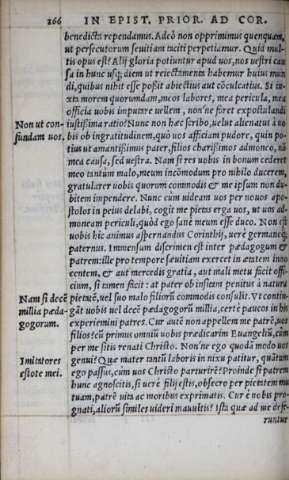 266 IN EPIST. PRIOR. AD COR.
benedicta rependamus. Adeò non opprimimus quenquam,
ut persecutorum seuitiam taciti perpetiamur. Quid mul-
tis opus est? Alij gloria potiuntur apud uos, nos uestri cau
sa in hunc usq; diem ut reiectamenta habemur huius mun
di, quibus nihil esse possit abiectius aut cōculcatius. Si iu-
xta morem quorundam, meos labores, mea pericula, mea
officia uobis imputare uellem, nonne foret expostulandi
Non ut con- iustißima ratio? Nunc non hæc scribo, uelut alienatus à uo
fundam uos. bis ob ingratitudinem, quò uos afficiam pudore, quin po-
tius ut amantißimus pater, filios charißimos admoneo, nō
mea causa, sed uestra. Nam si res uobis in bonum cederet
meo tantùm malo, meum incōmodum pro nihilo ducerem,
gratularer uobis quorum commodis & me ipsum non du-
bitem impendere. Nunc cùm uideam uos per nouos apo-
stolos in peius delabi, cogit me pietas erga uos, ut uos ad-
moneam periculi, quòd ego sanè meum esse duco. Non est
uobis hic animus aspernandus Corinthij, uerè germaneq;
paternus. Immensum discrimen est inter pædagogum &
patrem: ille pro tempore seuitiam exercet in ætatem inno
centem, & aut mercedis gratia, aut mali metu facit offi-
cium, si tamen facit: at pater ob insitam penitus à natura
Nam si decē pietatē, uel suo malo filiorū commodis consulit. Ut contin-
millia pæda- gāt uobis uel decē pædagogorū millia, certè paucos in his
gogorum. experiemini patres. Cur autē non appellem me patrē, uos
filios? cū primus omniū uobis prædicarim Euangeliū, cùm
per me sitis renati Christo. Nonne ego quodā modo uos
Imitatores genui? Quæ mater tantū laboris in nixu patitur, quātum
estote mei. ego passus, cùm uos Christo parturirē? Proinde si patrem
hunc agnoscitis, si uerè filij estis, obsecro per pietatem mu
tuam, patrē uita ac moribus exprimatis. Cur è nobis pro-
gnati, aliorū similes uideri mauultis? Ista quæ ad me defe-
runtur